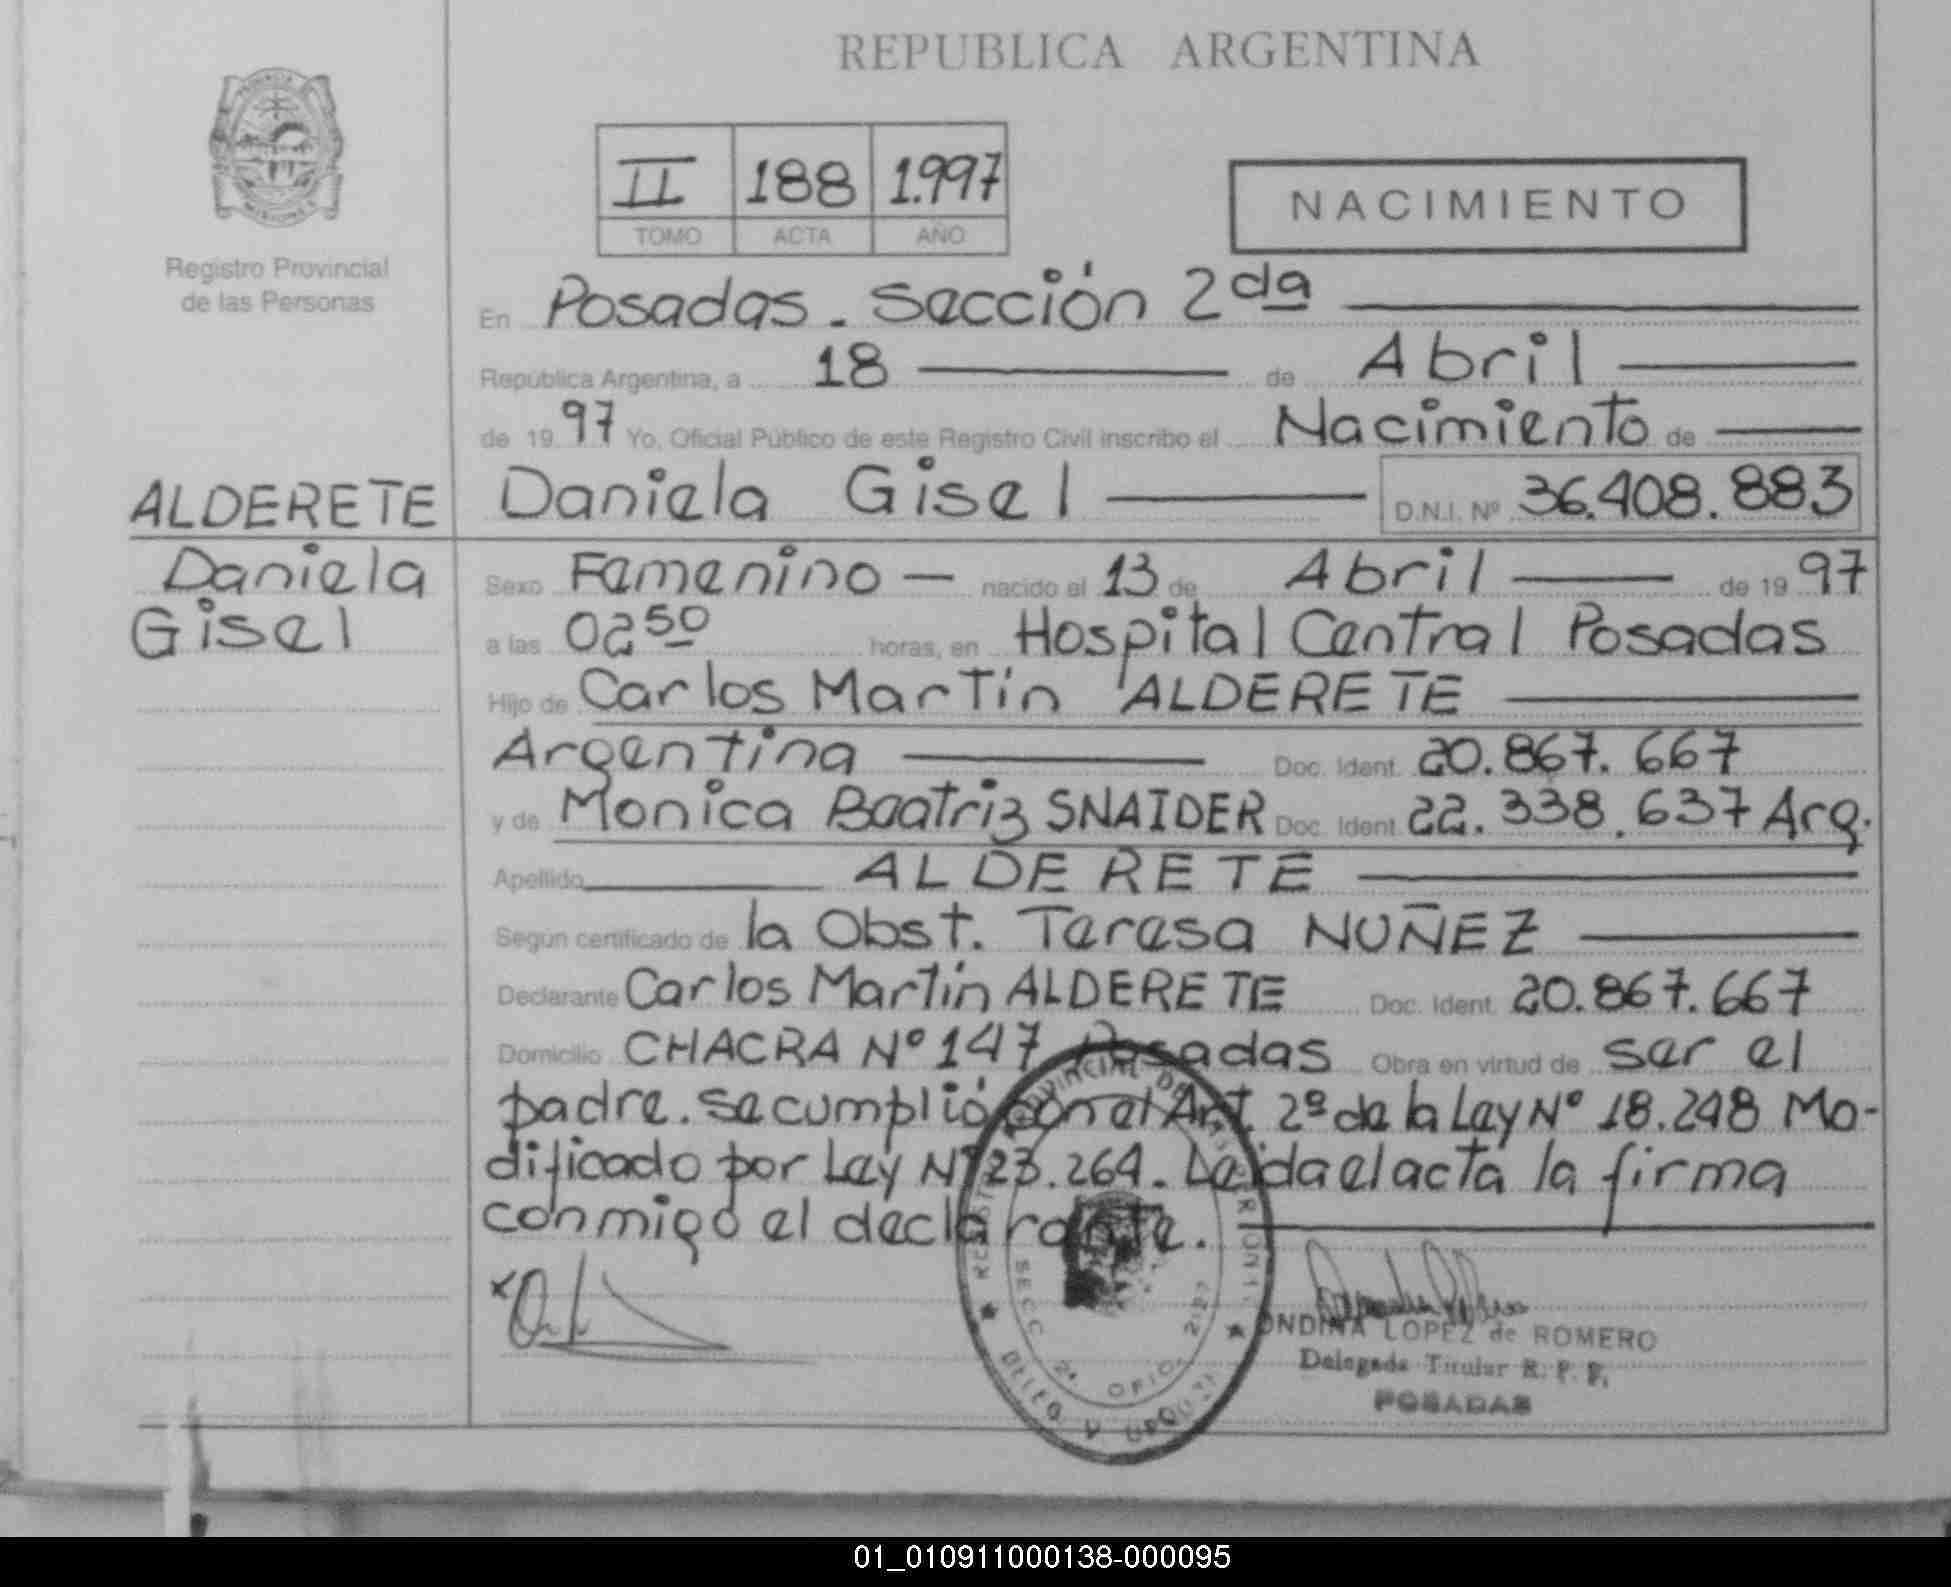 REPUBLICA ARGENTINA
II 188 1.997
TOMO ACTA AÑO
NACIMIENTO
Registro Provincial
de las Personas
En Posadas. Sección 2da
República Argentina, a 18 de Abril
de 19 97 Yo, Oficial Público de este Registro Civil inscribo el Nacimiento de
ALDERETE Daniela Gisel D.N.I. Nº 36.408.883
Daniela Sexo Femenino nacido el 13 de Abril de 19 97
Gisel a las 02 50 horas, en Hospital Central Posadas
Hijo de Carlos Martín ALDERETE
Argentina Doc. Ident. 20.867.667
y de Monica Beatriz SNAIDER Doc. Ident. 22.338.637 Arg.
Apellido ALDERETE
Según certificado de la Obst. Teresa NUÑEZ
Declarante Carlos Martín ALDERETE Doc. Ident. 20.867.667
Domicilio CHACRA Nº 147 Posadas Obra en virtud de ser el
padre. se cumplió con el Art. 2º de la Ley Nº 18.248 Mo-
dificado por Ley Nº 23.264. Leída el acta la firma
conmigo el declarante.
SECC. 2ª OFIC.
ONDINA LOPEZ de ROMERO
Delegada Titular R. P. P.
POSADAS
01_010911000138-000095